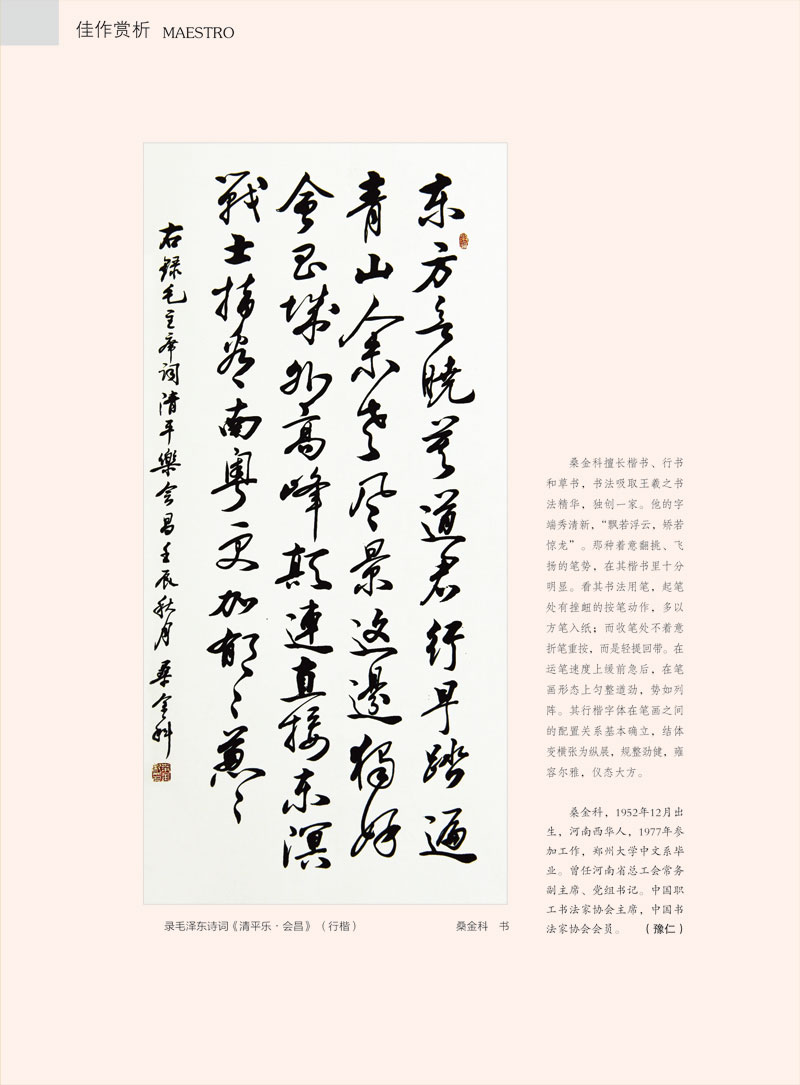 佳作赏析 MAESTRO
东方欲曉莫道君行早踏遍
青山人未老风景这邊獨好
會昌城外高峰颠連直接东溟
戰士指看南粤更加郁〻葱〻
右録毛主席词清平樂会昌壬辰秋月 桑金科
录毛泽东诗词《清平乐·会昌》（行楷） 桑金科 书
桑金科擅长楷书、行书
和草书，书法吸取王羲之书
法精华，独创一家。他的字
端秀清新，“飘若浮云，矫若
惊龙”。那种着意翻挑、飞
扬的笔势，在其楷书里十分
明显。看其书法用笔，起笔
处有挫衄的按笔动作，多以
方笔入纸；而收笔处不着意
折笔重按，而是轻提回带。在
运笔速度上缓前急后，在笔
画形态上匀整遒劲，势如列
阵。其行楷字体在笔画之间
的配置关系基本确立，结体
变横张为纵展，规整劲健，雍
容尔雅，仪态大方。
桑金科，1952年12月出
生，河南西华人，1977年参
加工作，郑州大学中文系毕
业。曾任河南省总工会常务
副主席、党组书记。中国职
工书法家协会主席，中国书
法家协会会员。 （豫仁）